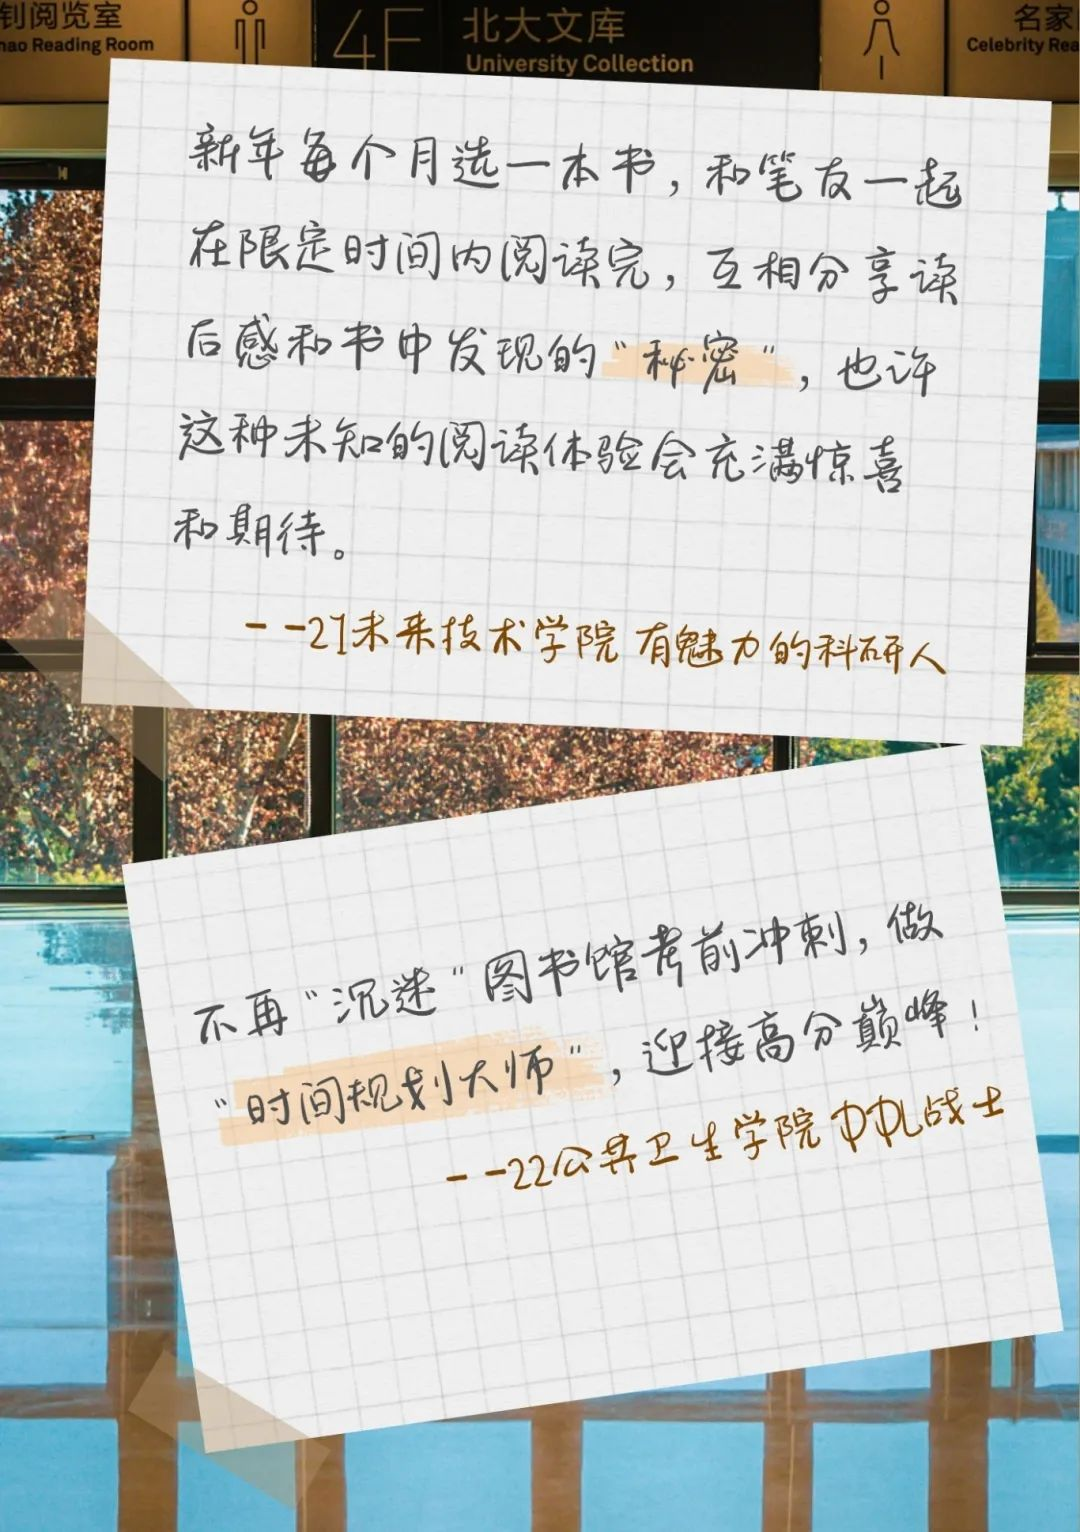 钊阅览室
hao Reading Room
4F
北大文库
University Collection
名家
Celebrity Rea
新年每个月选一本书，和笔友一起
在限定时间内阅读完，互相分享读
后感和书中发现的“秘密”，也许
这种未知的阅读体验会充满惊喜
和期待。
--21未来技术学院 有魅力的科研人
不再“沉迷”图书馆考前冲刺，做
“时间规划大师”，迎接高分巅峰！
--22公共卫生学院 DDL战士